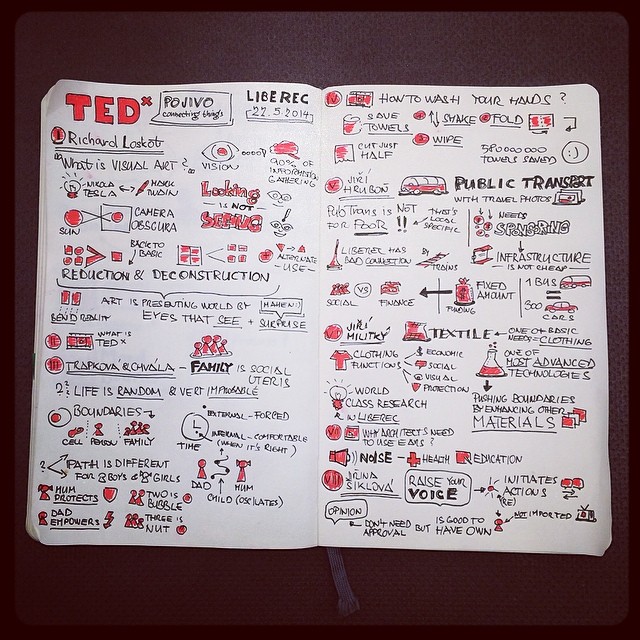 TEDx
POJIVO
connecting things
LIBEREC
22.5.2014
I Richard Loskot
"What is VISUAL ART?"
VISION
90% OF
INFORMATION
GATHERING
NIKOLA
TESLA
MARK
TWAIN
Looking
IS NOT
SEEING
SUN
CAMERA
OBSCURA
BACK TO
BASIC
ALTERNATE
-USE-
REDUCTION & DECONSTRUCTION
BEND REALITY
ART IS PRESENTING WORLD BY
EYES THAT SEE + SURPRISE
MAHEN:)
II WHAT IS
TEDx
III TRAPKOVÁ & CHVÁLA
FAMILY IS SOCIAL
UTERIS
?! LIFE IS RANDOM & VERY IMPROBABLE
BOUNDARIES
CELL PERSON FAMILY
TIME
EXTERNAL-FORCED
INTERNAL-COMFORTABLE
(WHEN IT'S RIGHT)
? PATH IS DIFFERENT
FOR BOYS & GIRLS
DAD HUM
CHILD (OSCILATES)
HUM
PROTECTS
TWO IS
BUBBLE
DAD
EMPOWERS
THREE IS
NUT
IV HOW TO WASH YOUR HANDS?
SAVE
TOWELS
SHAKE & FOLD
WIPE
CUT JUST
HALF
TOWELS SAVED
V JIŘÍ
HRUBOŇ
PUBLIC TRANSPORT
WITH TRAVEL PHOTOS
PUB TRANS IS NOT
FOR POOR !!
THAT'S
LOCAL
SPECIFIC
NEEDS
SPONSORING
LIBEREC HAS
BAD CONNECTION
BY
TRAINS
INFRASTRUCTURE
IS NOT CHEAP
SOCIAL VS FINANCE
FUNDING
FIXED
AMOUNT
1 BUS
=
500
CARS
VI JIŘÍ
MILITKÝ
TEXTILE
ONE OF BASIC
NEEDS = CLOTHING
CLOTHING
FUNCTION
ECONOMIC
SOCIAL
VISUAL
PROTECTION
ONE OF
MOST ADVANCED
TECHNOLOGIES
WORLD
CLASS RESEARCH
IN LIBEREC
PUSHING BOUNDARIES
BY ENHANCING OTHER
MATERIALS
VII WHY ARCHITECTS NEED
TO USE EARS?
NOISE HEALTH EDUCATION
VIII JIŘINA
ŠIKLOVÁ
RAISE YOUR
VOICE
INITIATES
ACTIONS
(RE)
OPINION
DON'T NEED
APPROVAL
BUT IS GOOD TO
HAVE OWN
NOT IMPORTED